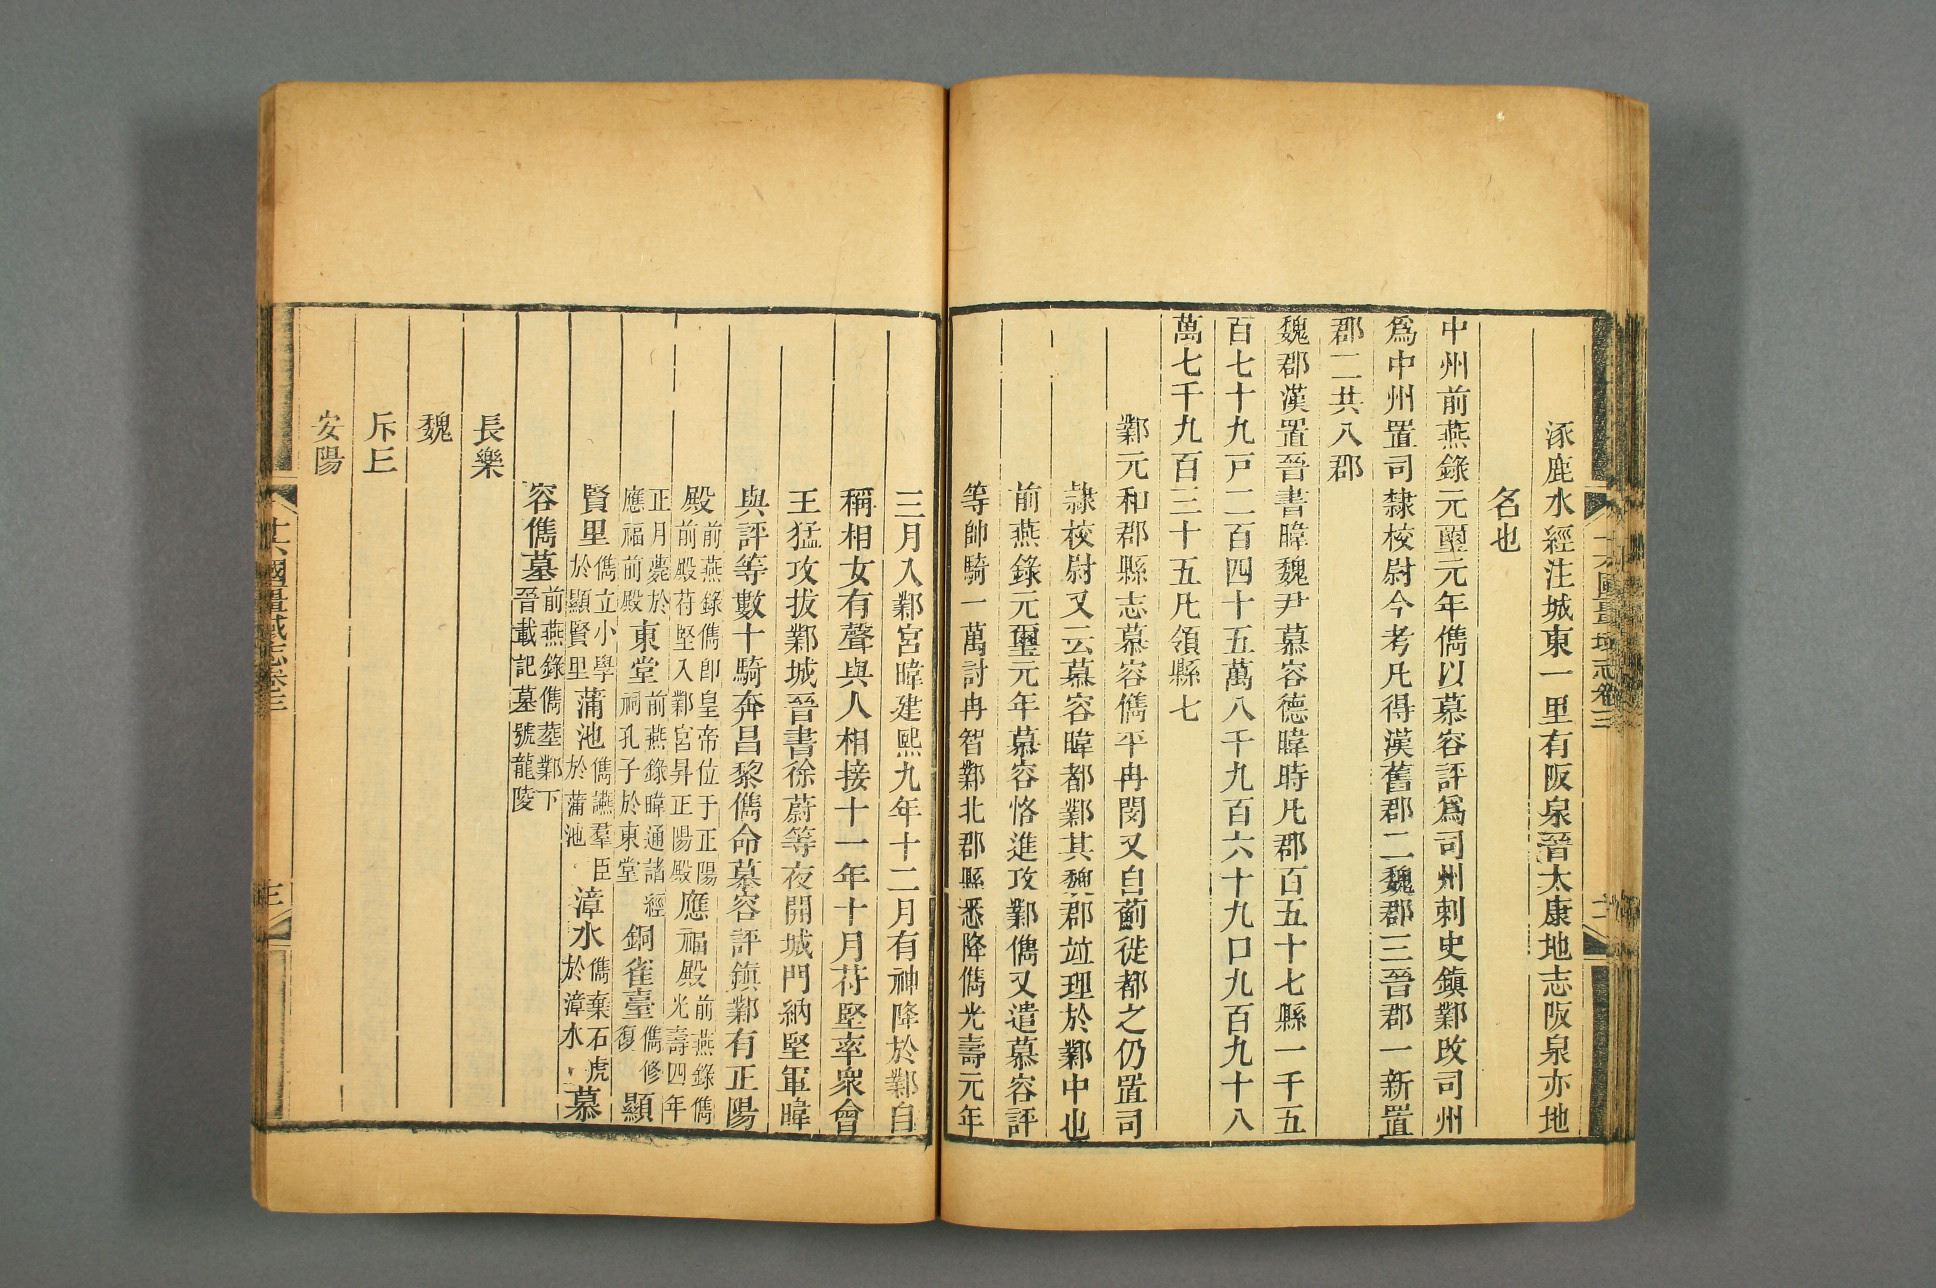 涿鹿水經注城東一里有阪泉晉太康地志阪泉亦地
名也
中州前燕錄元璽元年儁以慕容評爲司州刺史鎮鄴改司州
爲中州置司隸校尉今考凡得漢舊郡二魏郡三晉郡一新置
郡二共八郡
魏郡漢置晉書暐魏尹慕容德暐時凡郡百五十七縣一千五
百七十九戸二百四十五萬八千九百六十九口九百九十八
萬七千九百三十五凡領縣七
鄴元和郡縣志慕容儁平冉閔又自薊徙都之仍置司
隸校尉又云慕容暐都鄴其魏郡竝理於鄴中也
前燕錄元璽元年慕容恪進攻鄴儁又遣慕容評
等帥騎一萬討冉智鄴北郡縣悉降儁光壽元年
十六國疆域志卷三
三月入鄴宮暐建熙九年十二月有神降於鄴自
稱相女有聲與人相接十一年十月苻堅率衆會
王猛攻拔鄴城晉書徐蔚等夜開城門納堅軍暐
與評等數十騎奔昌黎儁命慕容評鎮鄴有正陽
殿前燕錄儁卽皇帝位于正陽前殿苻堅入鄴宮昇正陽殿應福殿前燕錄儁光壽四年
正月薨於應福前殿東堂前燕錄暐通諸經祠孔子於東堂銅雀臺儁修復顯
賢里儁立小學於顯賢里蒲池儁讌羣臣於蒲池漳水儁棄石虎於漳水慕
容儁墓前燕錄儁葬鄴下晉載記墓號龍陵
長樂
魏
斥丘
安陽
十六國疆域志卷三
三